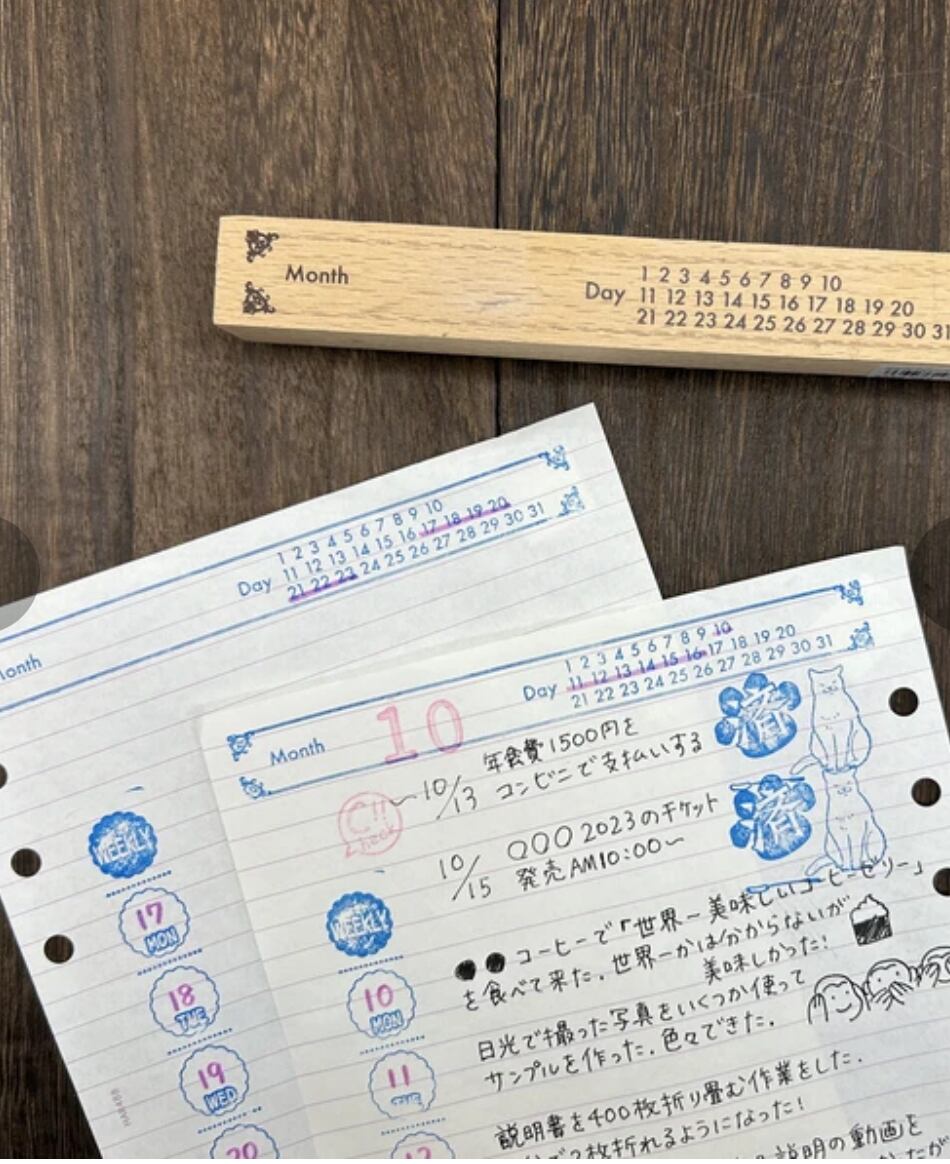 Month
Day
1 2 3 4 5 6 7 8 9 10
11 12 13 14 15 16 17 18 19 20
21 22 23 24 25 26 27 28 29 30 31
Day
1 2 3 4 5 6 7 8 9 10
11 12 13 14 15 16 17 18 19 20
21 22 23 24 25 26 27 28 29 30 31
WEEKLY
17
MON
18
TUE
19
WED
20
Month
10
Day
1 2 3 4 5 6 7 8 9 10
11 12 13 14 15 16 17 18 19 20
21 22 23 24 25 26 27 28 29 30 31
C!!
heck
10/13 年会費1500円を
コンビニで支払いする
済
10/15 〇〇〇2023のチケット
発売AM10:00〜
済
WEEKLY
10
MON
●●コーヒーで「世界一美味しいコーヒーゼリー」
を食べて来た。世界一かは分からないが
美味しかった!
11
TUE
日光で撮った写真をいくつか使って
サンプルを作った。色々できた。
12
説明書を400枚折り畳む作業をした。
で2枚折れるようになった!
説明の動画を